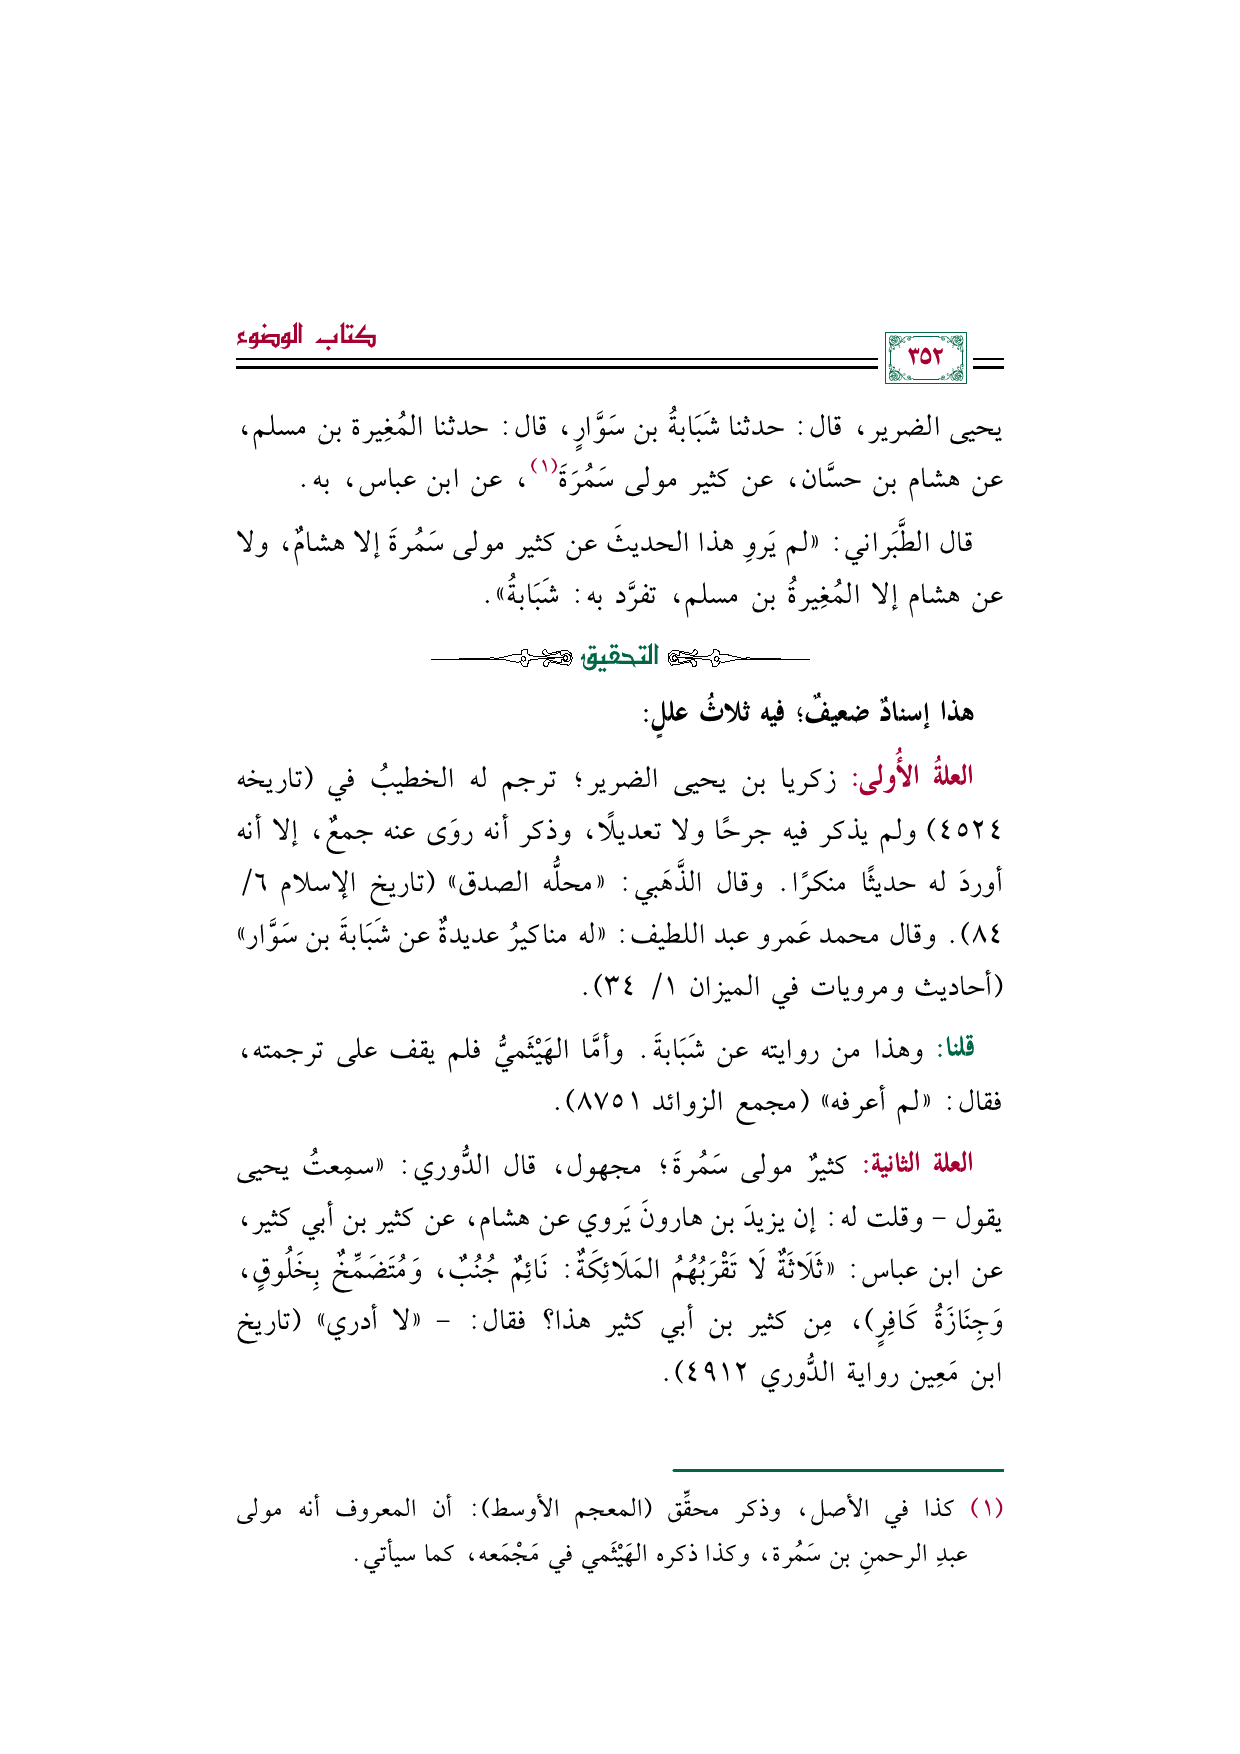 كتاب الوضوء
٣٥٢
يحيى الضرير، قال: حدثنا شَبَابةُ بن سَوَّارٍ، قال: حدثنا المُغِيرة بن مسلم،
عن هشام بن حسَّان، عن كثير مولى سَمُرَةَ(١)، عن ابن عباس، به.
قال الطَّبَراني: «لم يَروِ هذا الحديثَ عن كثير مولى سَمُرةَ إلا هشامٌ، ولا
عن هشام إلا المُغِيرةُ بن مسلم، تفرَّد به: شَبَابةُ».
التحقيق
هذا إسنادٌ ضعيفٌ؛ فيه ثلاثُ عللٍ:
العلةُ الأُولى: زكريا بن يحيى الضرير؛ ترجم له الخطيبُ في (تاريخه
٤٥٢٤) ولم يذكر فيه جرحًا ولا تعديلًا، وذكر أنه روَى عنه جمعٌ، إلا أنه
أوردَ له حديثًا منكرًا. وقال الذَّهَبي: «محلُّه الصدق» (تاريخ الإسلام ٦/
٨٤). وقال محمد عَمرو عبد اللطيف: «له مناكيرُ عديدةٌ عن شَبَابةَ بن سَوَّار»
(أحاديث ومرويات في الميزان ١/ ٣٤).
قلنا: وهذا من روايته عن شَبَابةَ. وأمَّا الهَيْثَميُّ فلم يقف على ترجمته،
فقال: «لم أعرفه» (مجمع الزوائد ٨٧٥١).
العلة الثانية: كثيرٌ مولى سَمُرةَ؛ مجهول، قال الدُّوري: «سمِعتُ يحيى
يقول – وقلت له: إن يزيدَ بن هارونَ يَروي عن هشام، عن كثير بن أبي كثير،
عن ابن عباس: «ثَلَاثَةٌ لَا تَقْرَبُهُمُ المَلَائِكَةُ: نَائِمٌ جُنُبٌ، وَمُتَضَمِّخٌ بِخَلُوقٍ،
وَجِنَازَةُ كَافِرٍ)، مِن كثير بن أبي كثير هذا؟ فقال: – «لا أدري» (تاريخ
ابن مَعِين رواية الدُّوري ٤٩١٢).
(١) كذا في الأصل، وذكر محقِّق (المعجم الأوسط): أن المعروف أنه مولى
عبدِ الرحمنِ بن سَمُرة، وكذا ذكره الهَيْثَمي في مَجْمَعه، كما سيأتي.